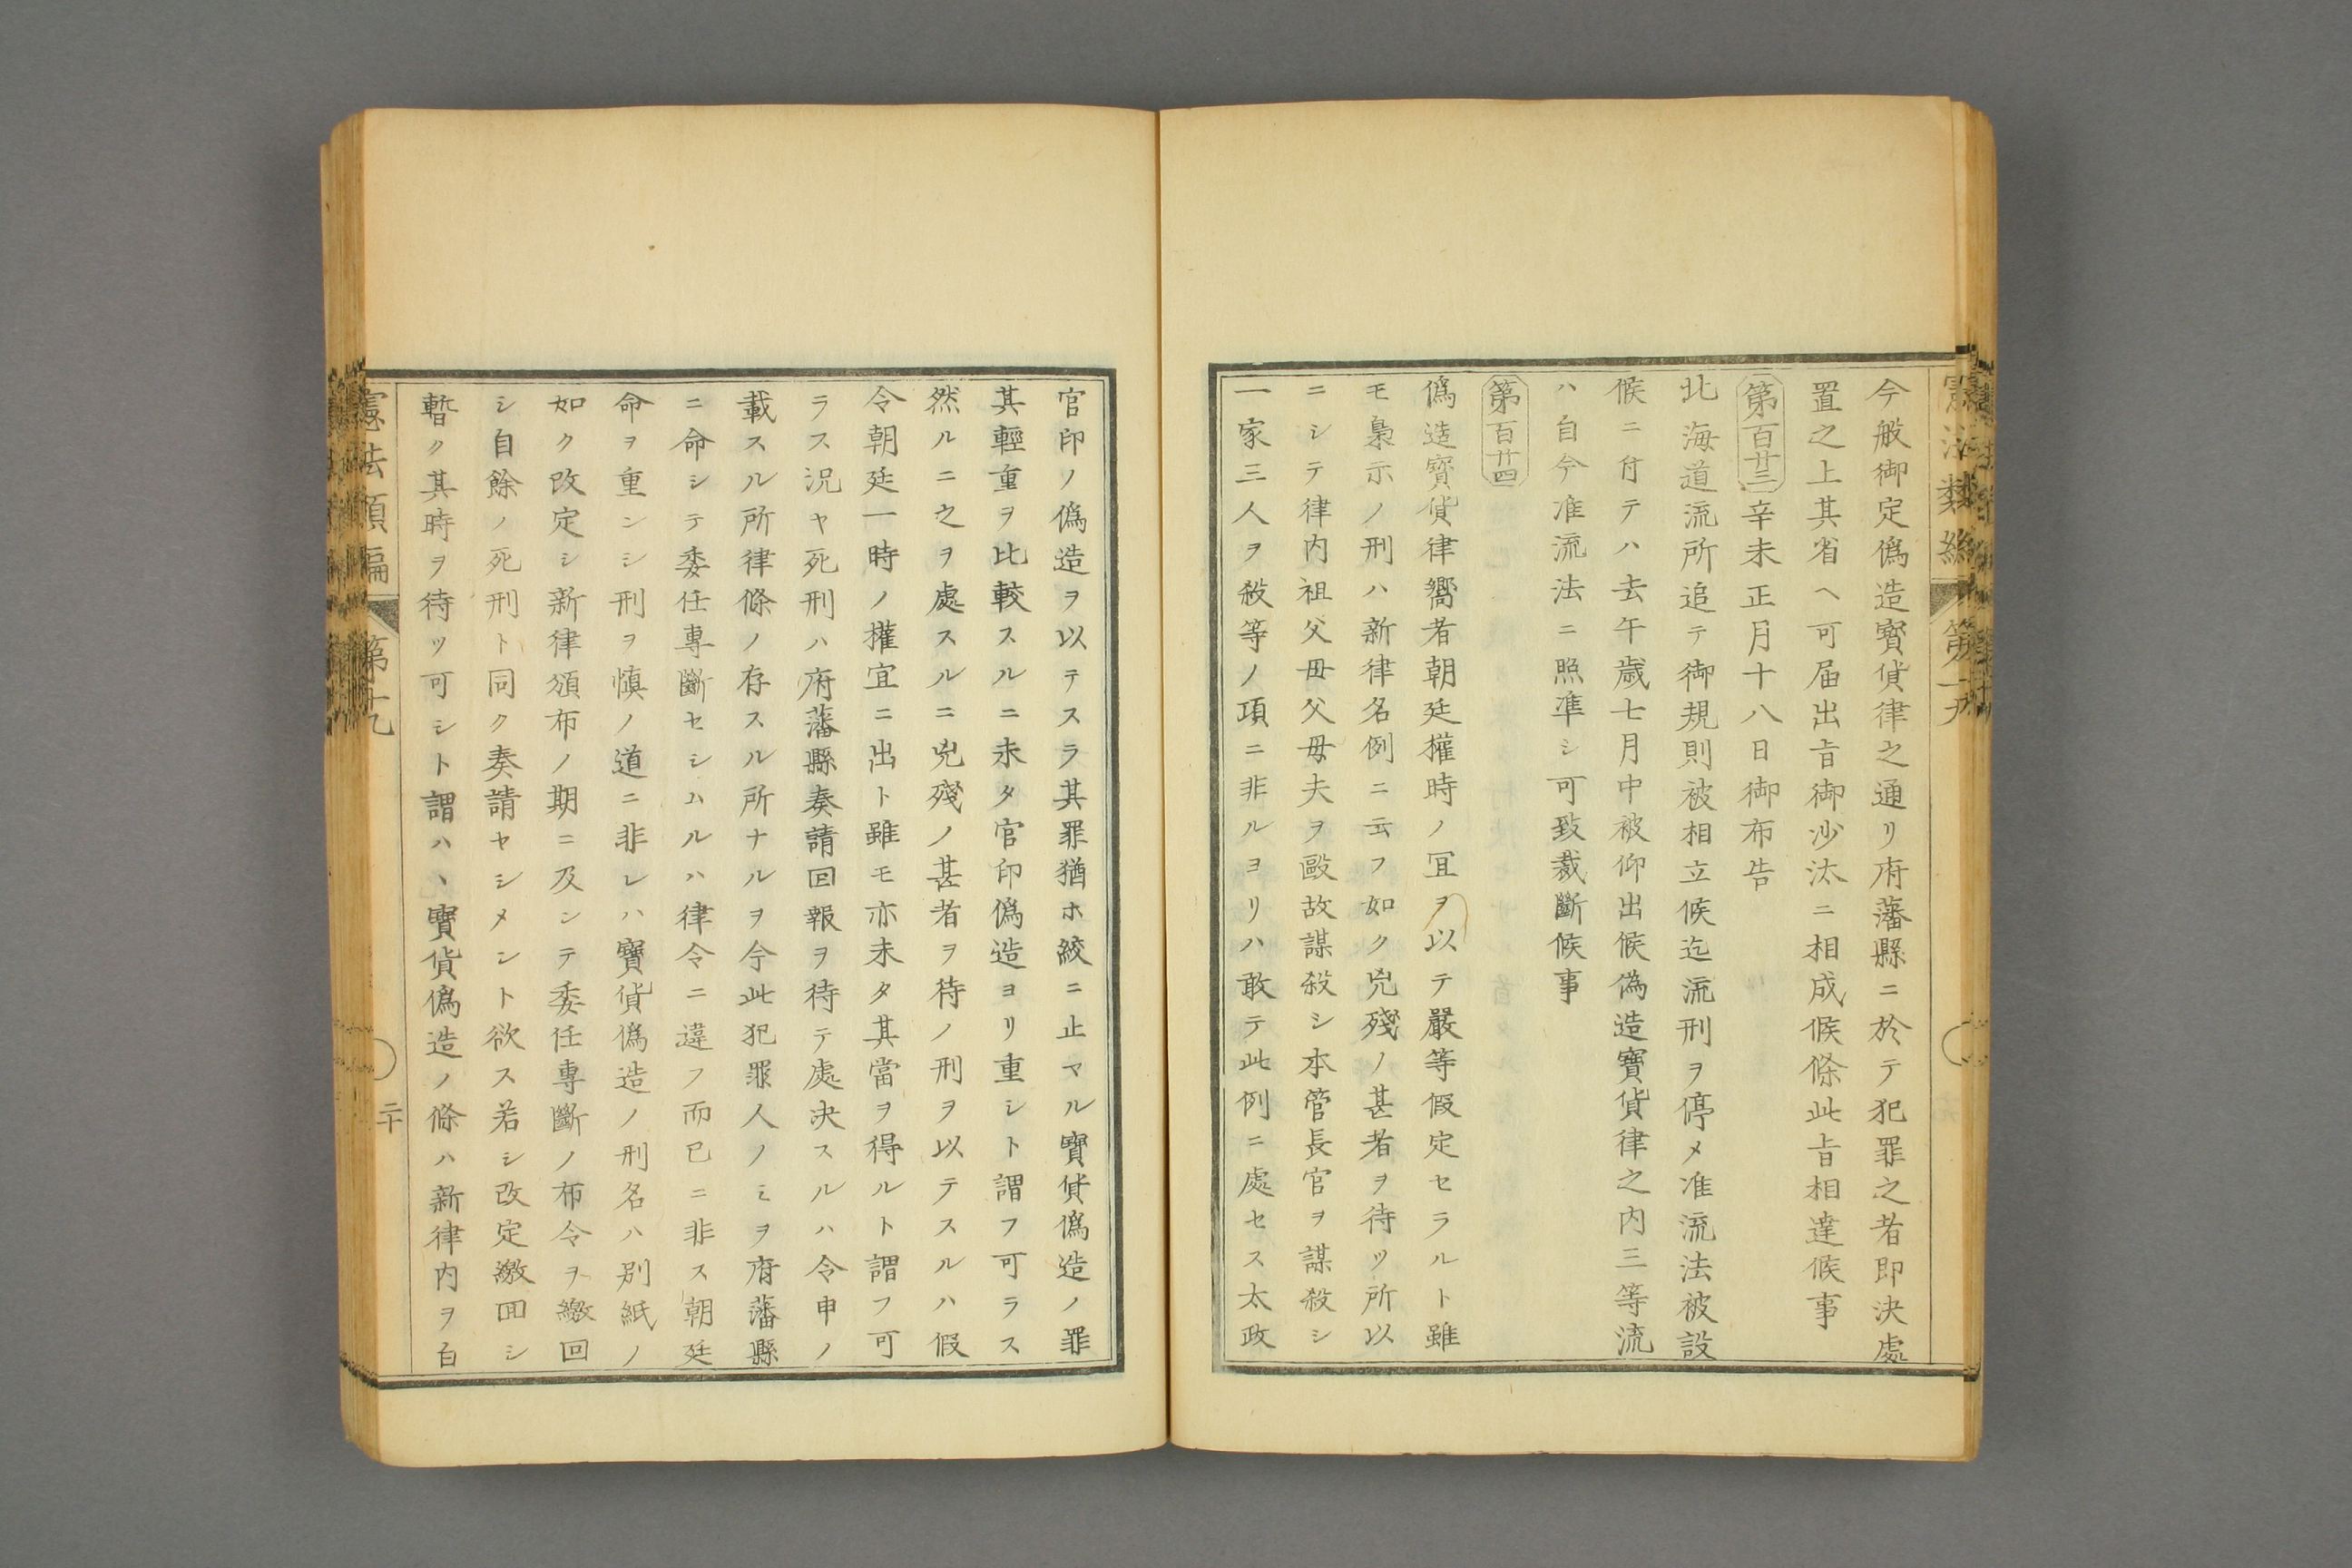 今般御定僞造寳貨律之通リ府藩縣ニ於テ犯罪之者即決處
置之上其省ヘ可届出旨御沙汰ニ相成候條此旨相達候事
第百廿三 辛未正月十八日御布告
北海道流所追テ御規則被相立候迄流刑ヲ停メ准流法被設
候ニ付テハ去午歳七月中被仰出候偽造寳貨律之内三等流
ハ自今准流法ニ照凖シ可致裁斷候事
第百廿四
僞造寳貨律嚮者朝廷權時ノ冝ヲ以テ嚴等假定セラルト雖
モ梟示ノ刑ハ新律名例ニ云フ如ク兇殘ノ甚者ヲ待ツ所以
ニシテ律内祖父母父母夫ヲ毆故謀殺シ本管長官ヲ謀殺シ
一家三人ヲ殺等ノ項ニ非ルヨリハ敢テ此例ニ處セス太政
官印ノ僞造ヲ以テスラ其罪猶ホ絞ニ止マル寳貨僞造ノ罪
其輕重ヲ比較スルニ未タ官印僞造ヨリ重シト謂フ可ラス
然ルニ之ヲ處スルニ兇殘ノ甚者ヲ待ノ刑ヲ以テスルハ假
令朝廷一時ノ權宜ニ出ト雖モ亦未タ其當ヲ得ルト謂フ可
ラス況ヤ死刑ハ府藩縣奏請回報ヲ待テ處決スルハ令申ノ
載スル所律條ノ存スル所ナルヲ今此犯罪人ノミヲ府藩縣
ニ命シテ委任專斷セシハルハ律令ニ違フ而已ニ非ス朝廷
命ヲ重ンシ刑ヲ慎ノ道ニ非レハ寳貨僞造ノ刑名ハ別紙ノ
如ク改定シ新律頒布ノ期ニ及ンテ委任專斷ノ布令ヲ繳回
シ自餘ノ死刑ト同ク奏請ヤシメント欲ス若シ改定繳回シ
暫ク其時ヲ待ツ可シト謂ハヽ寳貨僞造ノ條ハ新律内ヲ白
憲法類編 第十九 二十